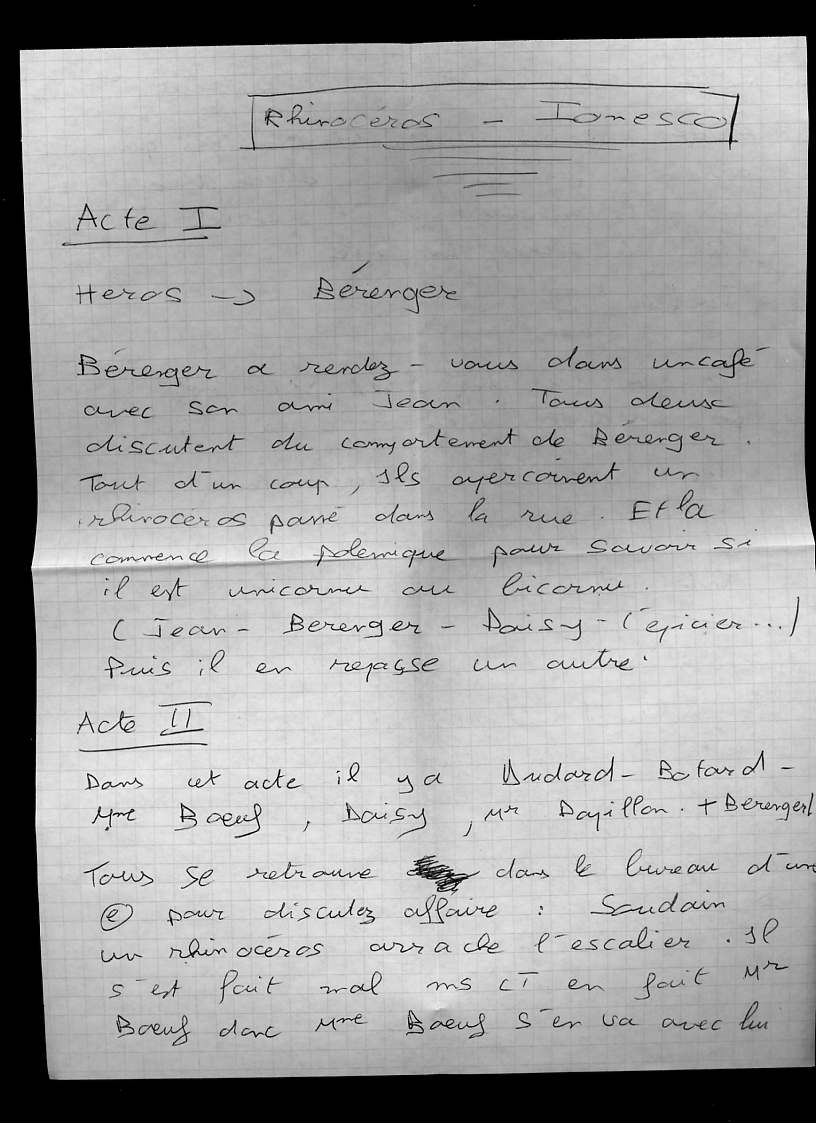 Rhinocéros - Ionesco
Acte I
Heros -> Bérenger
Bérenger a rendez-vous dans un café
avec son ami Jean. Tous deux
discutent du comportement de Bérenger.
Tout d'un coup, ils apercoivent un
rhinocéros passé dans la rue. Et la
commence la polemique pour savoir si
il est unicornu ou bicornu.
(Jean - Berenger - Daisy - l'épicier...)
Puis il en repasse un autre.
Acte II
Dans cet acte il y a Dudard - Botard -
Mme Boeuf, Daisy, Mr Papillon. + Berenger/
Tous se retrouve dans le bureau d'un
(e) pour discutez affaire : Soudain
un rhinocéros arrache l'escalier. Il
s'est fait mal ms CT en fait Mr
Boeuf donc Mme Boeuf s'en va avec lui